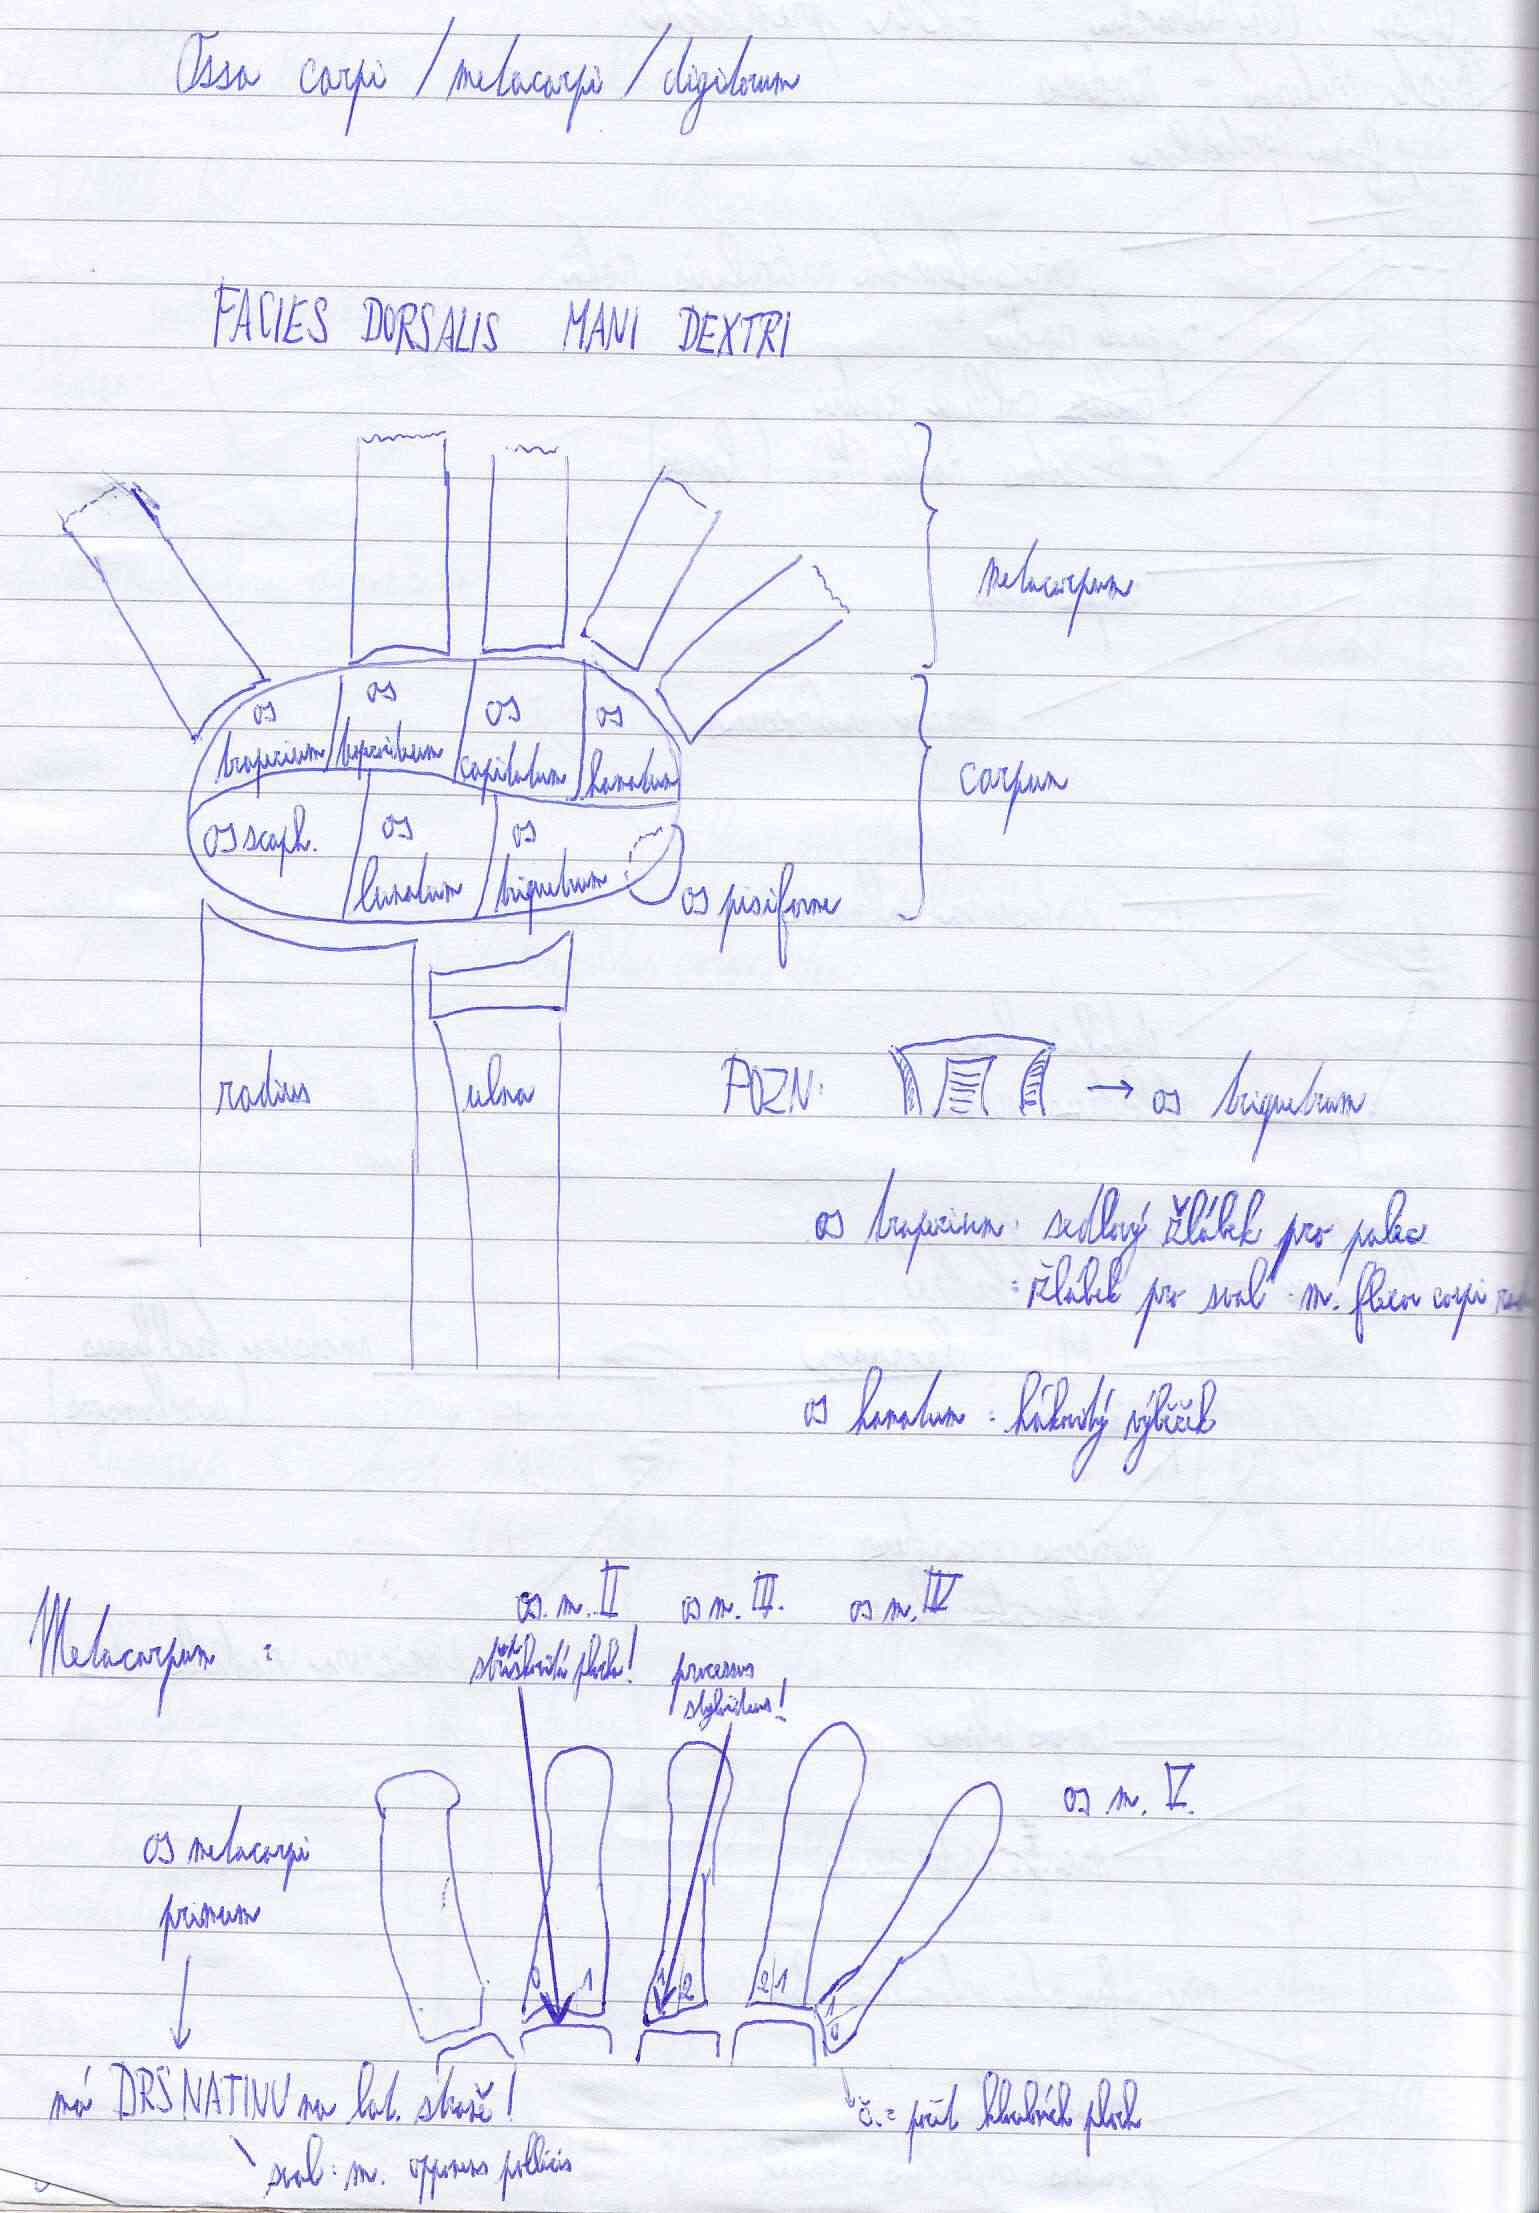 Ossa carpi / metacarpi / digitorum
FACIES DORSALIS MANI DEXTRI
metacarpum
os trapezium
os trapezoideum
os capitatum
os hamatum
carpum
os scaph.
os lunatum
os triquetrum
os pisiforme
radius
ulna
POZN: → os triquetrum
os trapezium: sedlový žlábek pro palec
= žlábek pro sval: m. flexor carpi rad
os hamatum = hákovitý výběžek
Metacarpum =
os. m. II
stříškovitá plocha!
os m. III.
processus
styloideus!
os m. IV
os m. V.
os metacarpi
primum
0 1
1 2
2 1
1
0
má DRSNATINU na lat. straně!
sval: m. opponens pollicis
č. = počet kloubních ploch